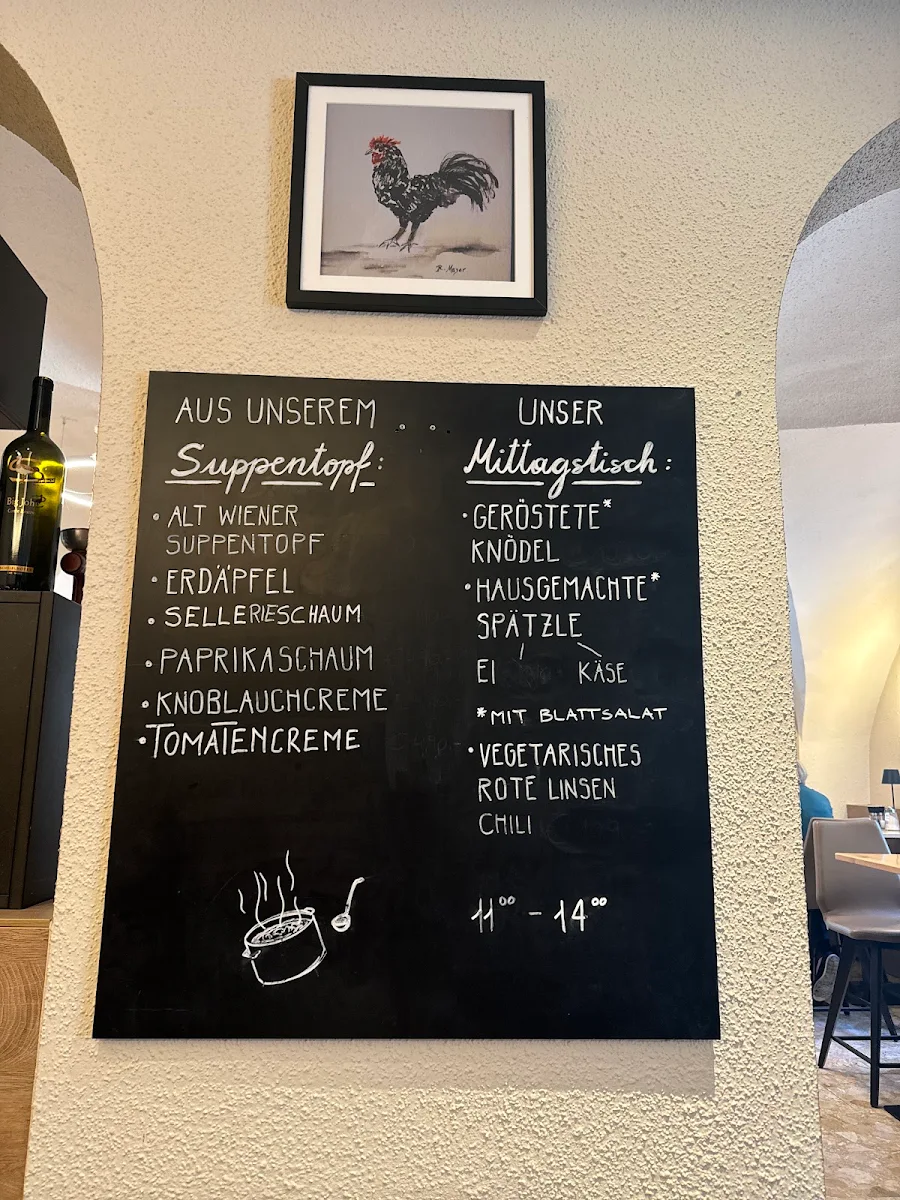 R. Mayer
AUS UNSEREM
Suppentopf:
• ALT WIENER
SUPPENTOPF
• ERDÄPFEL
• SELLERIESCHAUM
• PAPRIKASCHAUM
• KNOBLAUCHCREME
• TOMATENCREME
UNSER
Mittagstisch:
• GERÖSTETE*
KNÖDEL
• HAUSGEMACHTE*
SPÄTZLE
EI KÄSE
*MIT BLATTSALAT
• VEGETARISCHES
ROTE LINSEN
CHILI
11⁰⁰ - 14⁰⁰